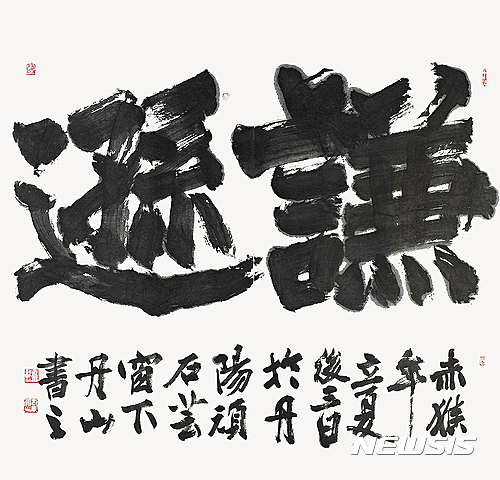 謙遜
赤猴
年
立夏
後三日
於丹
陽頑
石芸
窗下
丹山
書之
NEWSIS